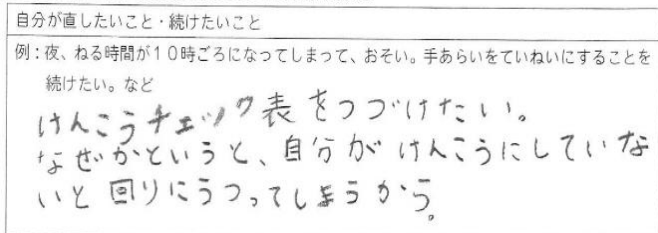 自分が直したいこと・続けたいこと
例：夜、ねる時間が１０時ごろになってしまって、おそい。手あらいをていねいにすることを
続けたい。など
けんこうチェック表をつづけたい。
なぜかというと、自分がけんこうにしていな
いと回りにうつってしまうから。